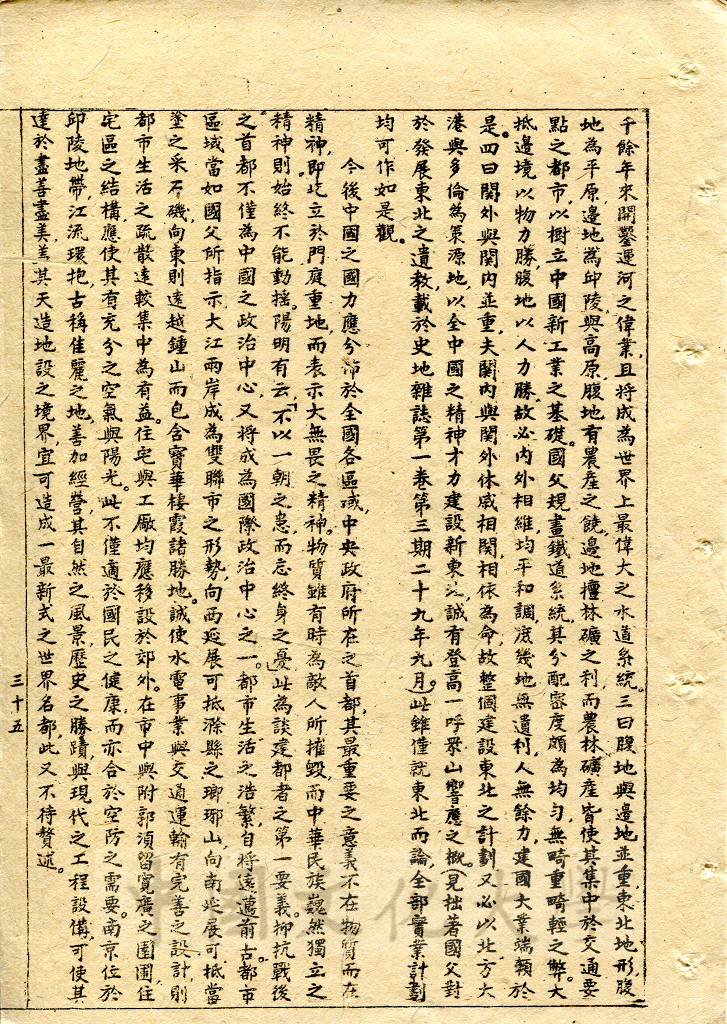 千餘年來開鑿運河之偉業，且將成為世界上最偉大之水道系統。三曰腹地與邊地並重，東北地形腹
地為平原，邊地為邱陵，與高原，腹地有農產之饒，邊地擅林礦之利，而農林礦產皆使其集中於交通要
點之都市，以樹立中國新工業之基礎。國父規畫鐵道系統，其分配密度頗為均勻，無畸重畸輕之弊。大
抵邊境以物力勝，腹地以人力勝，故必內外相維，均平和調，庶幾地無遺利，人無餘力，建國大業端賴於
是。四曰関外與関内並重，夫関内與関外休戚相関，相依為命，故整個建設東北之計劃又必以北方大
港與多倫為策源地，以全中國之精神才力建設新東北，誠有登高一呼眾山響應之概。（見拙著國父對
於發展東北之遺教，載於史地雜誌第一卷第三期二十九年九月。）此雖僅就東北而論，全部實業計劃
均可作如是觀。
今後中國之國力應分佈於全國各區域，中央政府所在之首都，其最重要之意義不在物質而在
精神，即屹立於門庭重地，而表示大無畏之精神。物質雖有時為敵人所摧毀，而中華民族巍然獨立之
精神，則始終不能動搖。陽明有云，「不以一朝之患，而忘終身之憂」，此為談建都者之第一要義。抑抗戰後
之首都不僅為中國之政治中心，又將成為國際政治中心之一。都市生活之浩繁，自將遠邁前古。都市
區域當如國父所指示大江兩岸成為雙聯市之形勢，向西延展可抵滁縣之瑯琊山，向南延展可抵當
塗之采石磯，向東則遠越鍾山而包含寶華棲霞諸勝地。誠使水電事業與交通運輸有完善之設計，則
都市生活之疏散遠較集中為有益。住宅與工廠均應移設於郊外。在市中與附郭須留寬廣之園圃，住
宅區之結構應使其有充分之空氣與陽光。此不僅適於國民之健康，而亦合於空防之需要。南京位於
邱陵地帶，江流環抱，古稱佳麗之地，善加經營，其自然之風景，歷史之勝蹟，與現代之工程設備，可使其
達於盡善盡美，善其天造地設之境界，宜可造成一最新式之世界名都，此又不待贅述。
三十五
中國文化大學